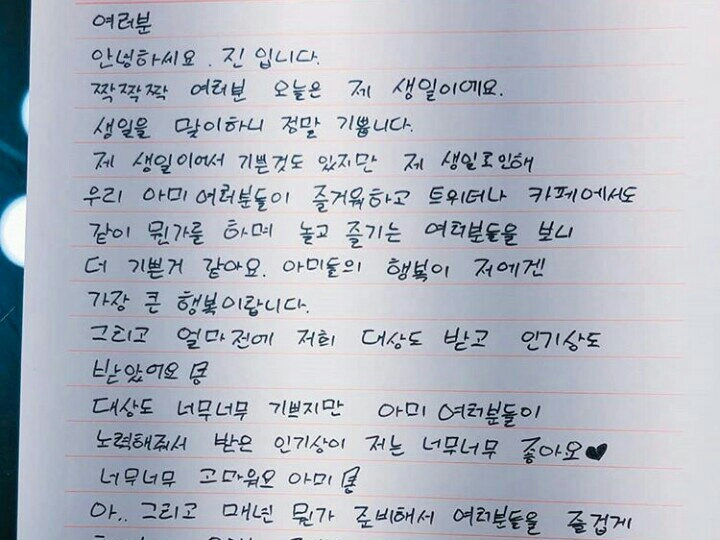 여러분
안녕하세요. 진 입니다.
짝짝짝 여러분 오늘은 제 생일이에요.
생일을 맞이하니 정말 기쁩니다.
제 생일이어서 기쁜것도 있지만 제 생일로인해
우리 아미 여러분들이 즐거워하고 트위터나 카페에서도
같이 뭔가를 하며 놀고 즐기는 여러분들을 보니
더 기쁜거 같아요. 아미들의 행복이 저에겐
가장 큰 행복이랍니다.
그리고 얼마전에 저희 대상도 받고 인기상도
받았어요
대상도 너무너무 기쁘지만 아미 여러분들이
노력해줘서 받은 인기상이 저는 너무너무 좋아요♥
너무너무 고마워요 아미
아.. 그리고 매년 뭔가 준비해서 여러분들을 즐겁게